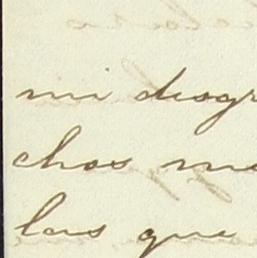 mi desgr
chos me
las que